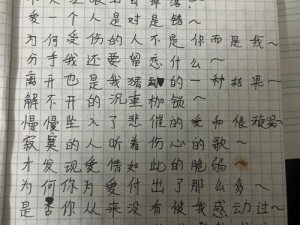 爱一个人是对是错~
为何受伤的人不是你而是我~
分手我还要留恋什么~
离开也是我猜的一种结果~
解不开的沉重枷锁~
慢慢坠入了悲催的爱和恨旋涡~
寂寞的人听着伤心的歌~
才发现爱情如此的脆弱~
为何你为爱付出了那么多~
是否你从来没有被我感动过~